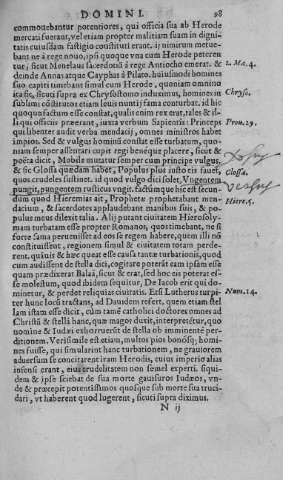 DOMINI.
98
commouebantur potentiores, qui officia sua ab Herode
mercati fuerant, vel etiam propter malitiam suam in digni-
tatis cuiusdam fastigio constituti erant. ij nimirum metue-
bant ne à rege nouo, ipsi quoque vna cum Herode peterentur
tur, sicut Menelaus sacerdotiũ à rege Antiocho emerat. &
deinde Annas atque Cayphas à Pilato. huiusmodi homines
suo capiti timebant simul cum Herode, quoniam omnino
ita est, sicuti supra ex Chrysostomo induximus, homines in
sublimi costitutos etiam leuis nuntij fama conturbat. id hic
quoque factum esse constat, qualis enim rex erat, tales & il-
li qui officiis præerant, iuxta verbum Sapientis: Princeps
qui libenter audit verba mendacij, omnes ministros habet
impios. Sed & vulgus hominũ constat esse turbatum, quo-
niam semper assentari cupit regi beneque placere, sicut &
poëta dicit, Mobile mutatur semper cum principe vulgus,
& sic Glossa quædam habet, Populus plus iusto eis fauet,
quos crudeles sustinet. id quod vulgo dici solet, Vngentem
pungit, pungentem rusticus vngit. factum que hîc est secun-
dum quod Hieremias ait, Prophetæ prophetabant men-
dacium, & sacerdotes applaudebant manibus suis, & po-
pulus meus dilexit talia. Alij putant ciuitatem Hierosoly-
mam turbatam esse propter Romanos, quos timebant, ne si
forte fama peruenisset ad eos se regem habere, quem illi nõ
constituissent, regionem simul & ciuitatem totam perde-
rent, quanuis & hæc queat esse causa tantæ turbationis, quod
cum audissent de stella dici, cogitare poterãt eam ipsam esse
quam prædixerat Balaã, sicut & erat, sed hoc eis poterat es-
se molestum, quod ibidem sequitur, De Iacob erit qui do-
minetur, & perdet reliquias ciuitatis. Etsi Lutherus turpi-
ter hunc locũ tractans, ad Dauidem refert, quem etiam stel
lam istam esse dicit, cùm tamē catholici doctores omnes ad
Christũ & stellã hanc, quæ magos duxit, interpretētur, quo
nomine & Iudæi exhorruerūt de stella ob imminentē per-
ditionem. Verisimile est etiam, multos pios bonosq́; homi-
nes fuisse, qui simularint hanc turbationem, ne grauiorem
aduersum se concitarent iram Herodis, cuius imperio alias
infensi erant, eius crudelitatem non semel experti. siqui-
dem & ipse sciebat de sua morte gauisuros Iudæos, vn-
de & præcepit potentissimos quosque sub morte sua truci-
dari, vt haberent quod lugerent, sicuti supra diximus.
N ij
2. Ma. 4.
Chryso.
Prou. 29.
Glossa.
versus
Hiere. 5.
Num. 24.